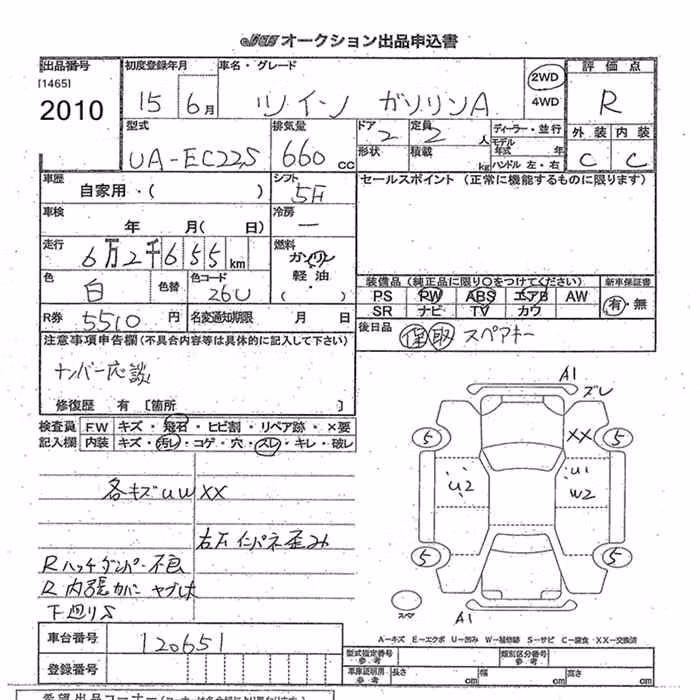 オークション出品申込書
出品番号 初度登録年月 車名・グレード 2WD 4WD 評価点
[1465] 2010 15 6月 ツイン ガソリンA R
型式 排気量 ドア 定員 ディーラー・並行 外装 内装
UA-EC22S 660cc 2 2人 モデル年式 年 C C
形状 積載 kg ハンドル 左・右
車歴 シフト セールスポイント (正常に機能するものに限ります)
自家用・( ) 5F
車検 年 月( 日) 冷房 ー
走行 6万2千655km 燃料 ガソリン 軽油 ( ・ )
色 白 色替 色コード 26U
装備品 (純正品に限り○をつけてください) 新車保証書
PS PW ABS エアB AW 有・無
SR ナビ TV カワ
R券 5510円 名変通知期限 月 日
後日品 保 取 スペアキー
注意事項申告欄(不具合内容等は具体的に記入して下さい)
ナンバー応談
修復歴 有 [箇所 ]
検査員記入欄 FW キズ・飛石・ヒビ割・リペア跡・×要
内装 キズ・汚レ・コゲ・穴・スレ・キレ・破レ
各キズUW XX
右F インパネ歪み
Rハッチダンパー不良
R内張カバー ヤブレ
下廻りS
A1 ズレ
5 XX 5
U2 U1 W2
5 5
スペア A1
A-キズ E-エクボ U-凹み W-補修跡 S-サビ C-腐食 XX-交換済
車台番号 120651
登録番号
型式指定番号 参考 類別区分番号 参考
車庫証明用 参考 長さ cm 幅 cm 高さ cm